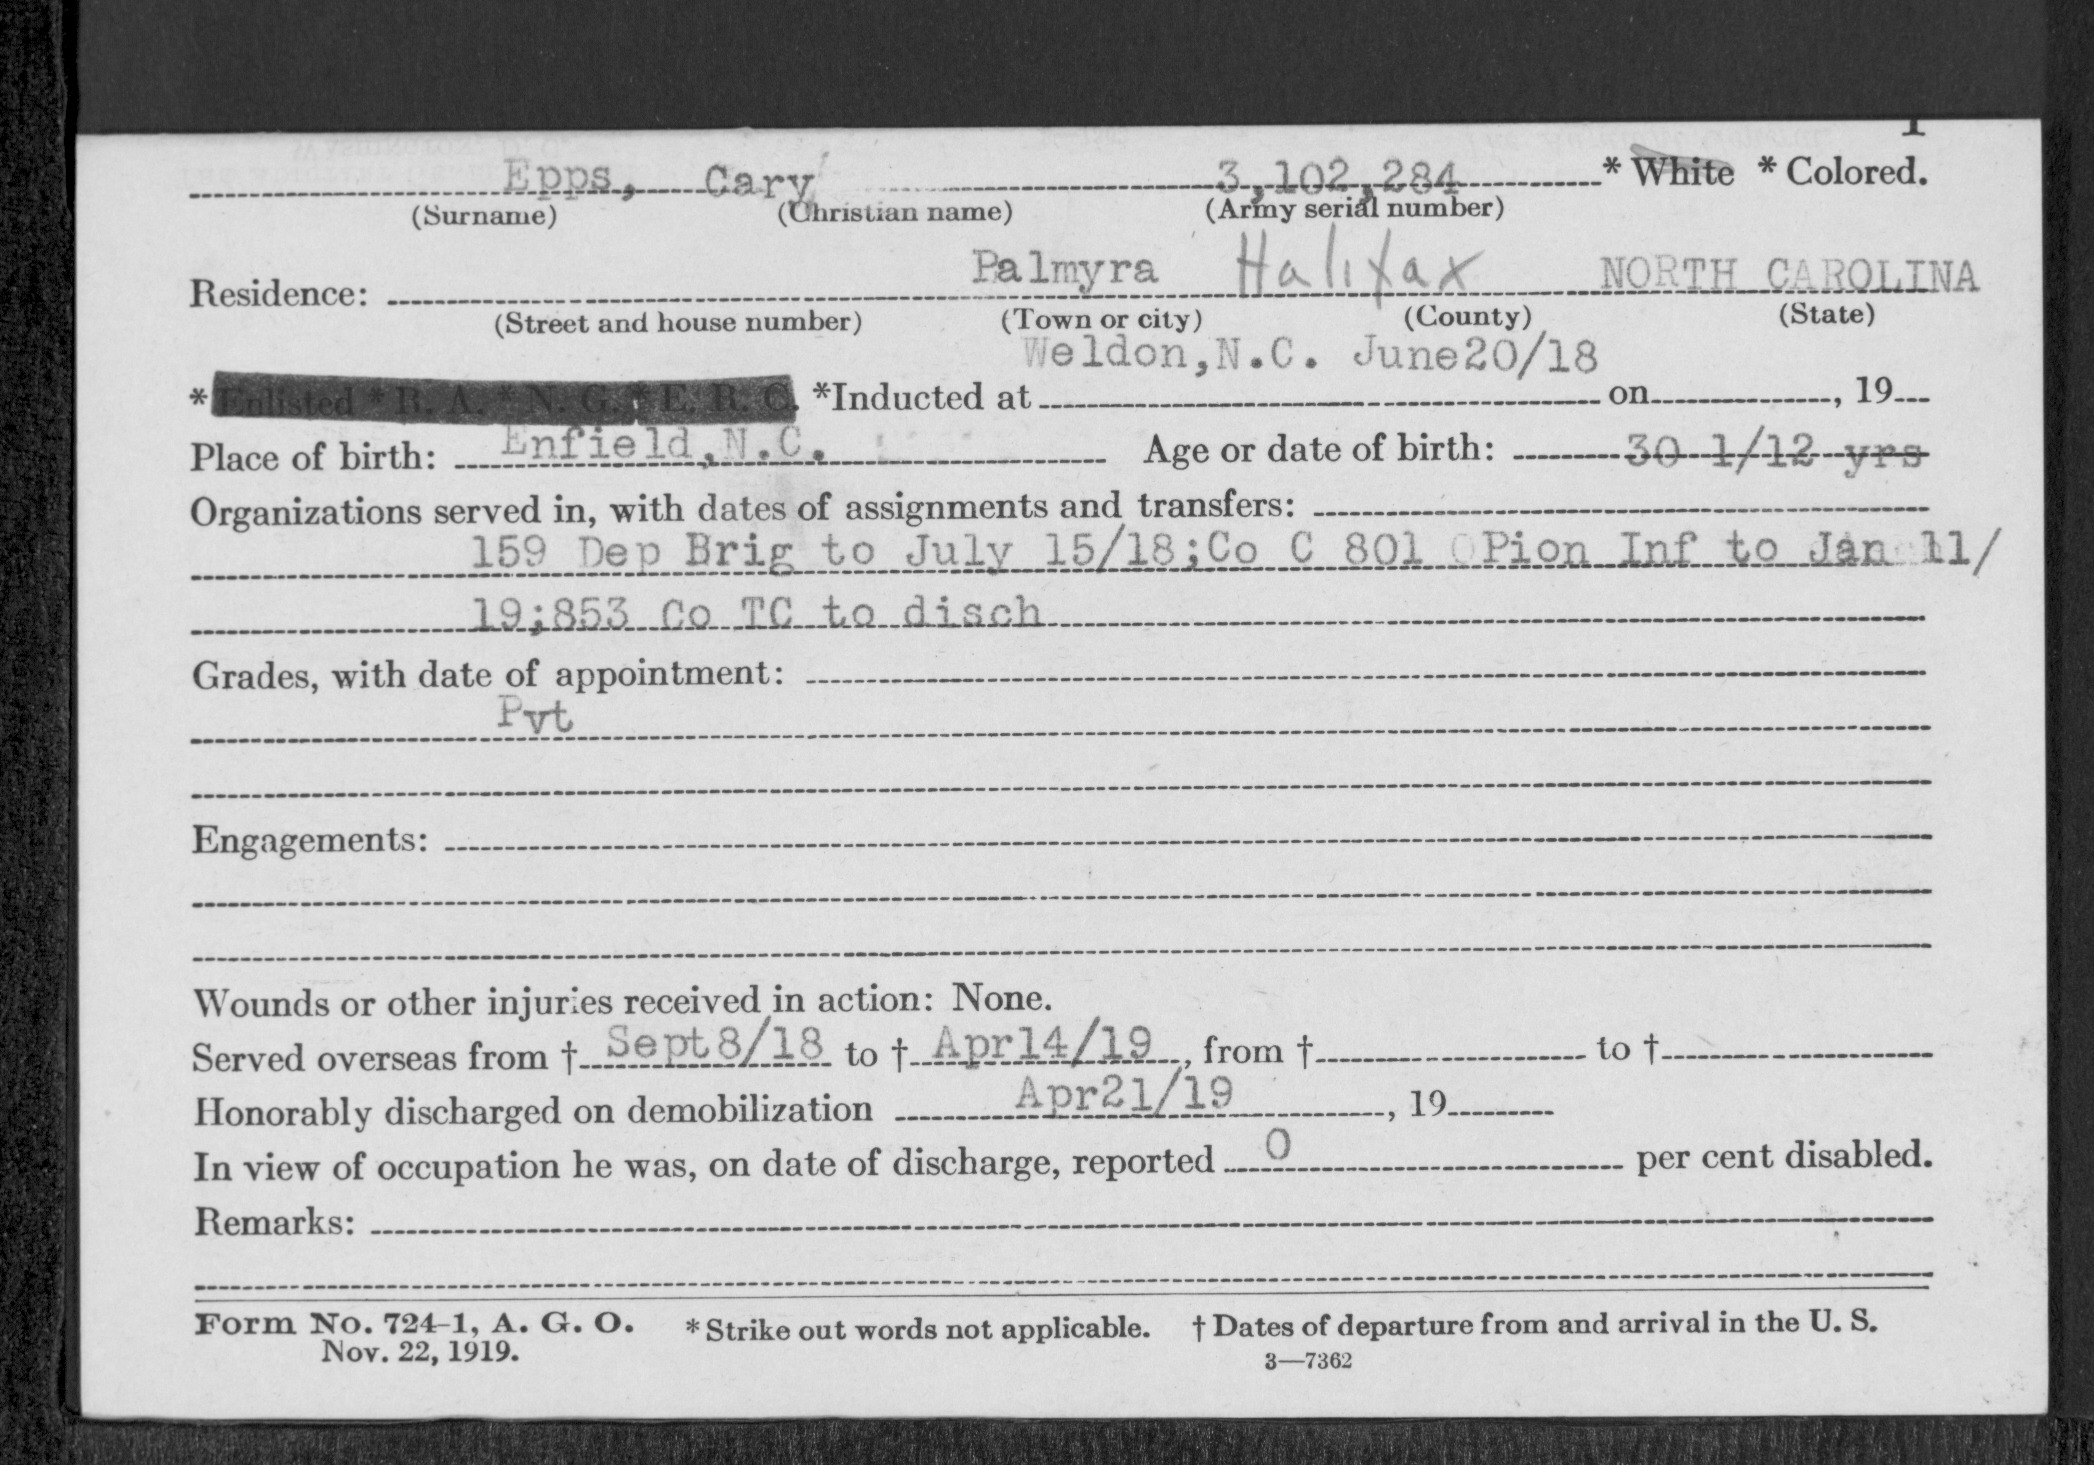 Epps, Cary 3,102,284 * White * Colored.
(Surname) (Christian name) (Army serial number)
Residence: Palmyra Halifax NORTH CAROLINA
(Street and house number) (Town or city) (County) (State)
Weldon,N.C. June20/18
* Enlisted * R. A. * N. G. * E. R. C. *Inducted at on , 19
Place of birth: Enfield,N.C. Age or date of birth: 30 1/12 yrs
Organizations served in, with dates of assignments and transfers:
159 Dep Brig to July 15/18;Co C 801 Pion Inf to Jan 11/
19;853 Co TC to disch
Grades, with date of appointment:
Pvt
Engagements:
Wounds or other injuries received in action: None.
Served overseas from † Sept8/18 to † Apr14/19, from † to †
Honorably discharged on demobilization Apr21/19 , 19
In view of occupation he was, on date of discharge, reported 0 per cent disabled.
Remarks:
Form No. 724-1, A. G. O. * Strike out words not applicable. † Dates of departure from and arrival in the U. S.
Nov. 22, 1919. 3—7362